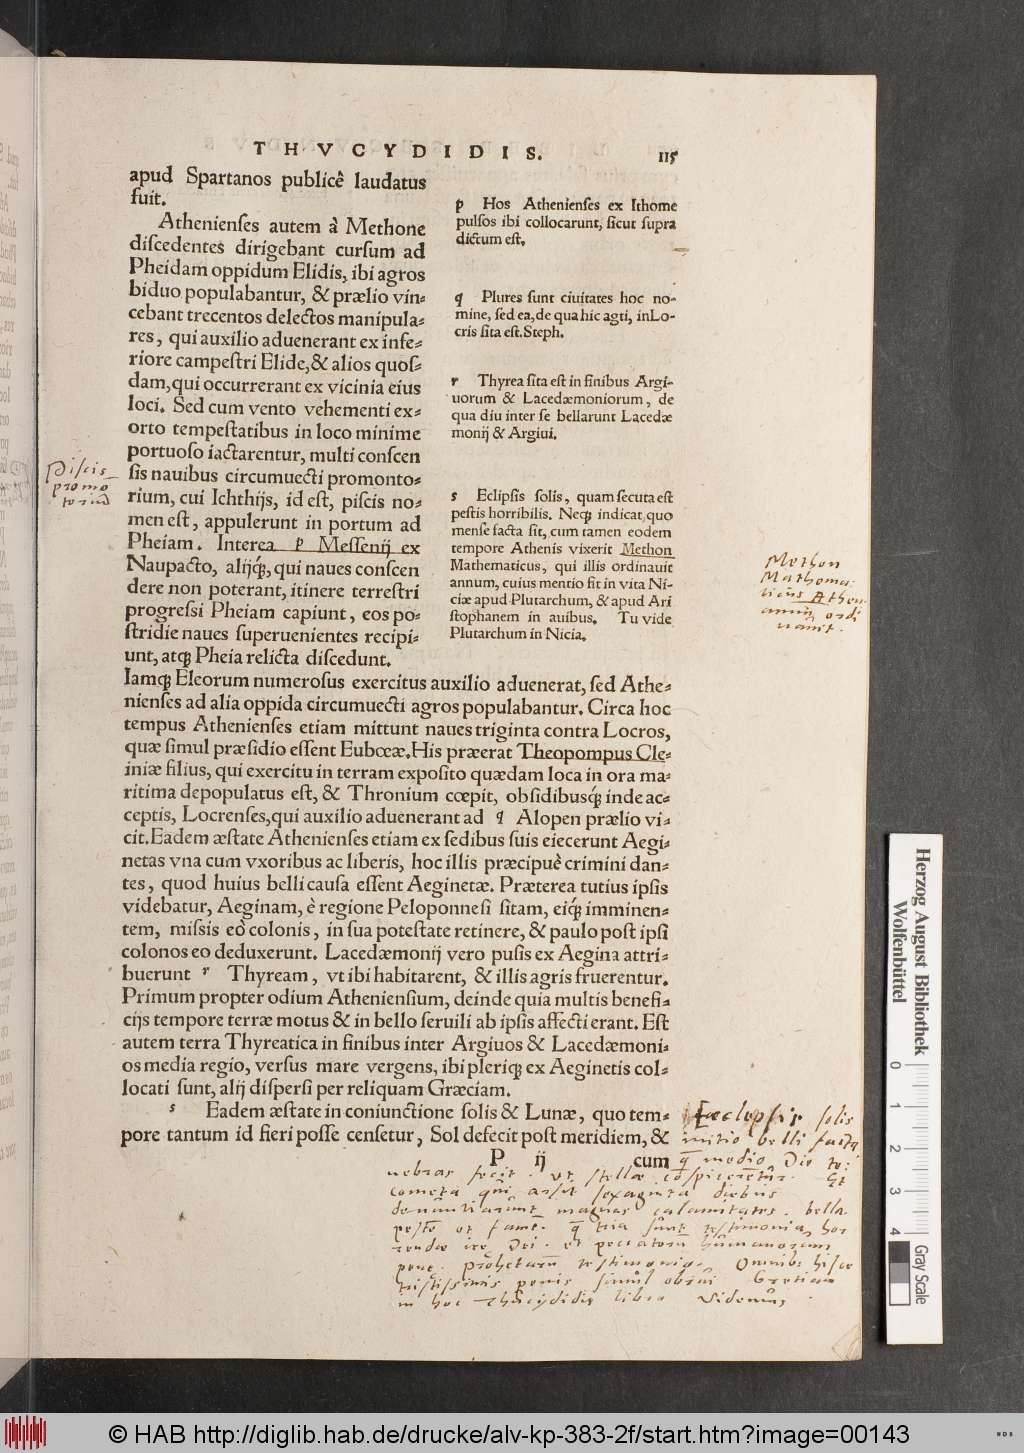 THVCYDIDIS. 115
apud Spartanos publicè laudatus
fuit.
Athenienses autem à Methone
discedentes dirigebant cursum ad
Pheidam oppidum Elidis, ibi agros
biduo populabantur, & prælio vin-
cebant trecentos delectos manipula-
res, qui auxilio aduenerant ex infe-
riore campestri Elide, & alios quos-
dam, qui occurrerant ex vicinia eius
loci. Sed cum vento vehementi ex-
orto tempestatibus in loco minime
portuoso iactarentur, multi conscen
sis nauibus circumuecti promonto-
rium, cui Ichthijs, id est, piscis no-
men est, appulerunt in portum ad
Pheiam. Interea p Messenij ex
Naupacto, alijq́;, qui naues conscen
dere non poterant, itinere terrestri
progressi Pheiam capiunt, eos po-
stridie naues superuenientes recipi-
unt, atq; Pheia relicta discedunt.
p Hos Athenienses ex Ithome
pulsos ibi collocarunt, sicut supra
dictum est.
q Plures sunt ciuitates hoc no-
mine, sed ea, de qua hic agti, in Lo-
cris sita est. Steph.
r Thyrea sita est in finibus Argi-
uorum & Lacedæmoniorum, de
qua diu inter se bellarunt Lacedæ
monij & Argiui.
s Eclipsis solis, quam secuta est
pestis horribilis. Neq; indicat, quo
mense facta sit, cum tamen eodem
tempore Athenis vixerit Methon
Mathematicus, qui illis ordinauit
annum, cuius mentio fit in vita Ni-
ciæ apud Plutarchum, & apud Ari
stophanem in auibus. Tu vide
Plutarchum in Nicia.
Piscis
promo
toriū
Methon
Mathema-
ticus Athen.
annum ordi
navit.
Iamq; Eleorum numerosus exercitus auxilio aduenerat, sed Athe-
nienses ad alia oppida circumuecti agros populabantur. Circa hoc
tempus Athenienses etiam mittunt naues triginta contra Locros,
quæ simul præsidio essent Eubœæ. His præerat Theopompus Cle-
iniæ filius, qui exercitu in terram exposito quædam loca in ora ma-
ritima depopulatus est, & Thronium cœpit, obsidibusq́; inde ac-
ceptis, Locrenses, qui auxilio aduenerant ad q Alopen prælio vi-
cit. Eadem æstate Athenienses etiam ex sedibus suis eiecerunt Aegi-
netas vna cum vxoribus ac liberis, hoc illis præcipuè crimini dan-
tes, quod huius belli causa essent Aeginetæ. Præterea tutius ipsis
videbatur, Aeginam, è regione Peloponnesi sitam, eiq́; imminen-
tem, missis eò colonis, in sua potestate retinere, & paulo post ipsi
colonos eo deduxerunt. Lacedæmonij vero pusis ex Aegina attri-
buerunt r Thyream, vt ibi habitarent, & illis agris fruerentur.
Primum propter odium Atheniensium, deinde quia multis benefi-
cijs tempore terræ motus & in bello seruili ab ipsis affecti erant. Est
autem terra Thyreatica in finibus inter Argiuos & Lacedæmoni-
os media regio, versus mare vergens, ibi pleriq; ex Aeginetis col-
locati sunt, alij dispersi per reliquam Græciam.
s Eadem æstate in coniunctione solis & Lunæ, quo tem-
pore tantum id fieri posse censetur, Sol defecit post meridiem, &
P ij cum
Eclypsis solis
initio belli facta
q̄ medio Die te:
nebras fecit. ut stellae cōspicerētur. Et
Cometa arsit sexaginta diebus
denūtiarūnt magnas calamitates. bella
pestē et famē. q̄ tria sūnt testimonia hor
rendae irae Dei. et peccatorū hūmanorum
testimonia. Omnibᵘ hisce
tristissimis penis simūl Gretiam
in hoc Thūcydidis libro videmūs.
Herzog August Bibliothek
Wolfenbüttel
0 1 2 3 4
Gray Scale
© HAB http://diglib.hab.de/drucke/alv-kp-383-2f/start.htm?image=00143